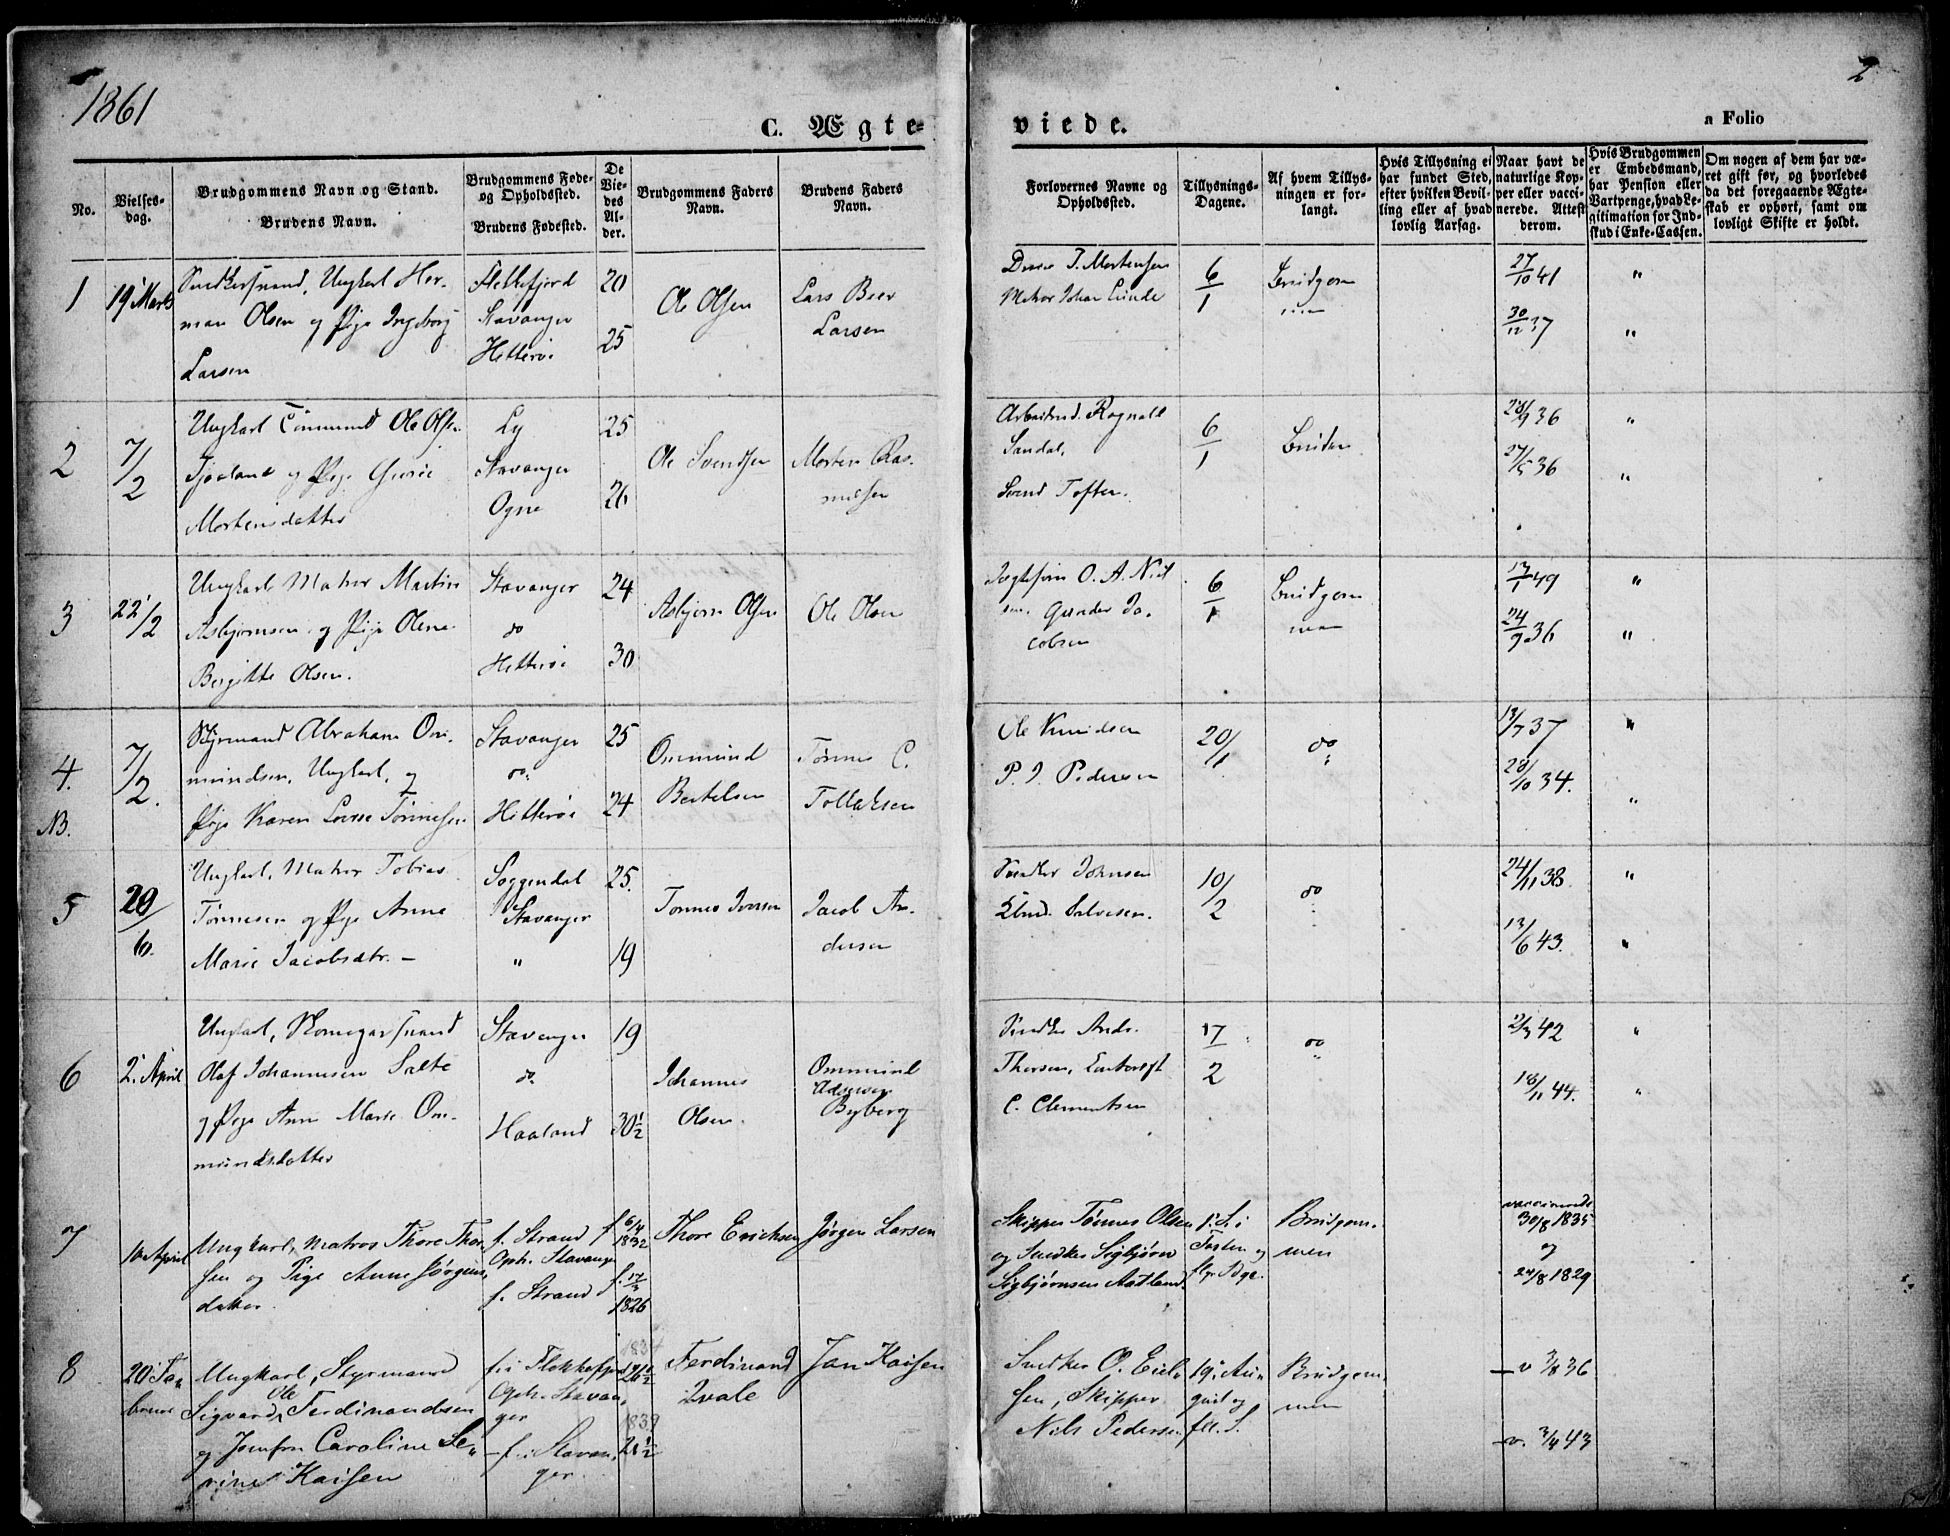 1861
2
C. Ægte=
viede.
a Folio
No.
Vielses-
dag.
Brudgommens Navn og Stand.
Brudens Navn.
Brudgommens Føde-
og Opholdssted.
Brudens Fødested.
De
Vie-
des
Al-
der.
Brudgommens Faders
Navn.
Brudens Faders
Navn.
Forlovernes Navne og
Opholdssted.
Tillysnings-
Dagene.
Af hvem Tillys-
ningen er for-
langt.
Hvis Tillysning ei
har fundet Sted,
efter hvilken Bevil-
ling eller af hvad
lovlig Aarsag.
Naar havt de
naturlige Kop-
per eller vacci-
nerede. Attest
derom.
Hvis Brudgommen
er Embedsmand,
har Pension eller
Vartpenge, hvad Le-
gitimation for Ind-
skud i Enke-Cassen.
Om nogen af dem har væ-
ret gift før, og hvorledes
da det foregaaende Ægte-
skab er ophørt, samt om
lovligt Skifte er holdt.
1 19 Marts Ungkarl Her-
man Olsen og Pige Ingeborg
Larsen
Flekkefjord
Stavanger
Hitterøe
20
25
Ole Olsen
Lars Beer
Larsen
J. Mortensen
Matros Johan Lunde
6/1
Brudgom
men
27/10 41
30/12 37
"
"
2 7/2 Ungkarl Ommund Ole Olsen
Tjøeland og Pige Gurie
Mortensdatter
Ly
Stavanger
Ogne
25
26
Ole Svendsen
Morten Ras-
musen
Arbeidsmd. Rognald
Sandal,
Svend Toften.
6/1
Bruden
28/9 36
27/5 36
"
"
3 22/2 Ungkarl Matros Martin
Asbjørnsen og Pige Olene
Bergitte Olsen.
Stavanger
do
Hitterøe
24
30
Asbjørn Olsen
Ole Olsen
O. A. Niel
sen. Gunder Ja-
cobsen
6/1
Brudgom
men
13/1 49
24/9 36
"
"
4.
NB.
7/2. Styrmand Abraham Om-
mundsen, Ungkarl, og
Pige Karen Lovise Tønnesen
Stavanger
do
Hitterøe
25
24
Ommund
Bertelsen
Tønnes C.
Tollaksen
Ole Knudsen
P. J. Pedersen
20/1
do
13/7 37
28/10 34.
"
"
5 20/6. Ungkarl, Matros Tobias
Tønnesen og Pige Anne
Marie Jacobsdtr. –
Soggendal
Stavanger
"
25.
19
Tønnes Iversen
Jacob An-
dersen
Snedker Johnsen
Salvesen.
10/2
do
24/11 38.
13/6 43.
"
"
6 2. April Ungkarl, Skomagersvend
Olaf Johannesen Salte
og Pige Ane Marie Om-
mundsdatter
Stavanger
do
Haaland
19
30 1/2
Johannes
Olsen.
Ommund
Byberg
Snedker Andr.
Thorsen,
C. Clementsen
17/2
do
2/3 42
18/11 44.
"
"
7 10 April Ungkarl, Matros Thore Thor-
sen og Pige Anne Jørgens-
datter.
f. Strand
Oph. Stavanger
f. Strand
f. 6/4
1832
f. 17/
1826
Thore Erichsen
Jørgen Larsen
Skipper Tønnes Olsen
og Snedker Sigbjørn
Sigbjørnsen Aatland.
1. S. i
Fasten og
flg. Ddge.
Brudgom-
men
vaccinerede
30/8 1835
og
24/8 1829
8 20 Fe-
bruar Ungkarl, Styrmand
Ole
Sigvard Ferdinandsen
og Jomfru Caroline Se-
rine Kaisen
f. i Flekkefjord
Oph. Stavan-
ger
f. i Stavan-
ger
1834
26 1/2
1839
21 1/2
Ferdinand
Qvale
Jan Kaisen
Snedker O. Eiel-
sen, Skipper
Nils Pedersen
19. Au-
gust og
fl. S.
Brudgom-
men
v 3/8 36
v. 3/4 43